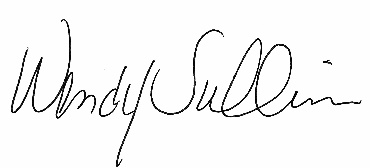 Wendy Sullivan